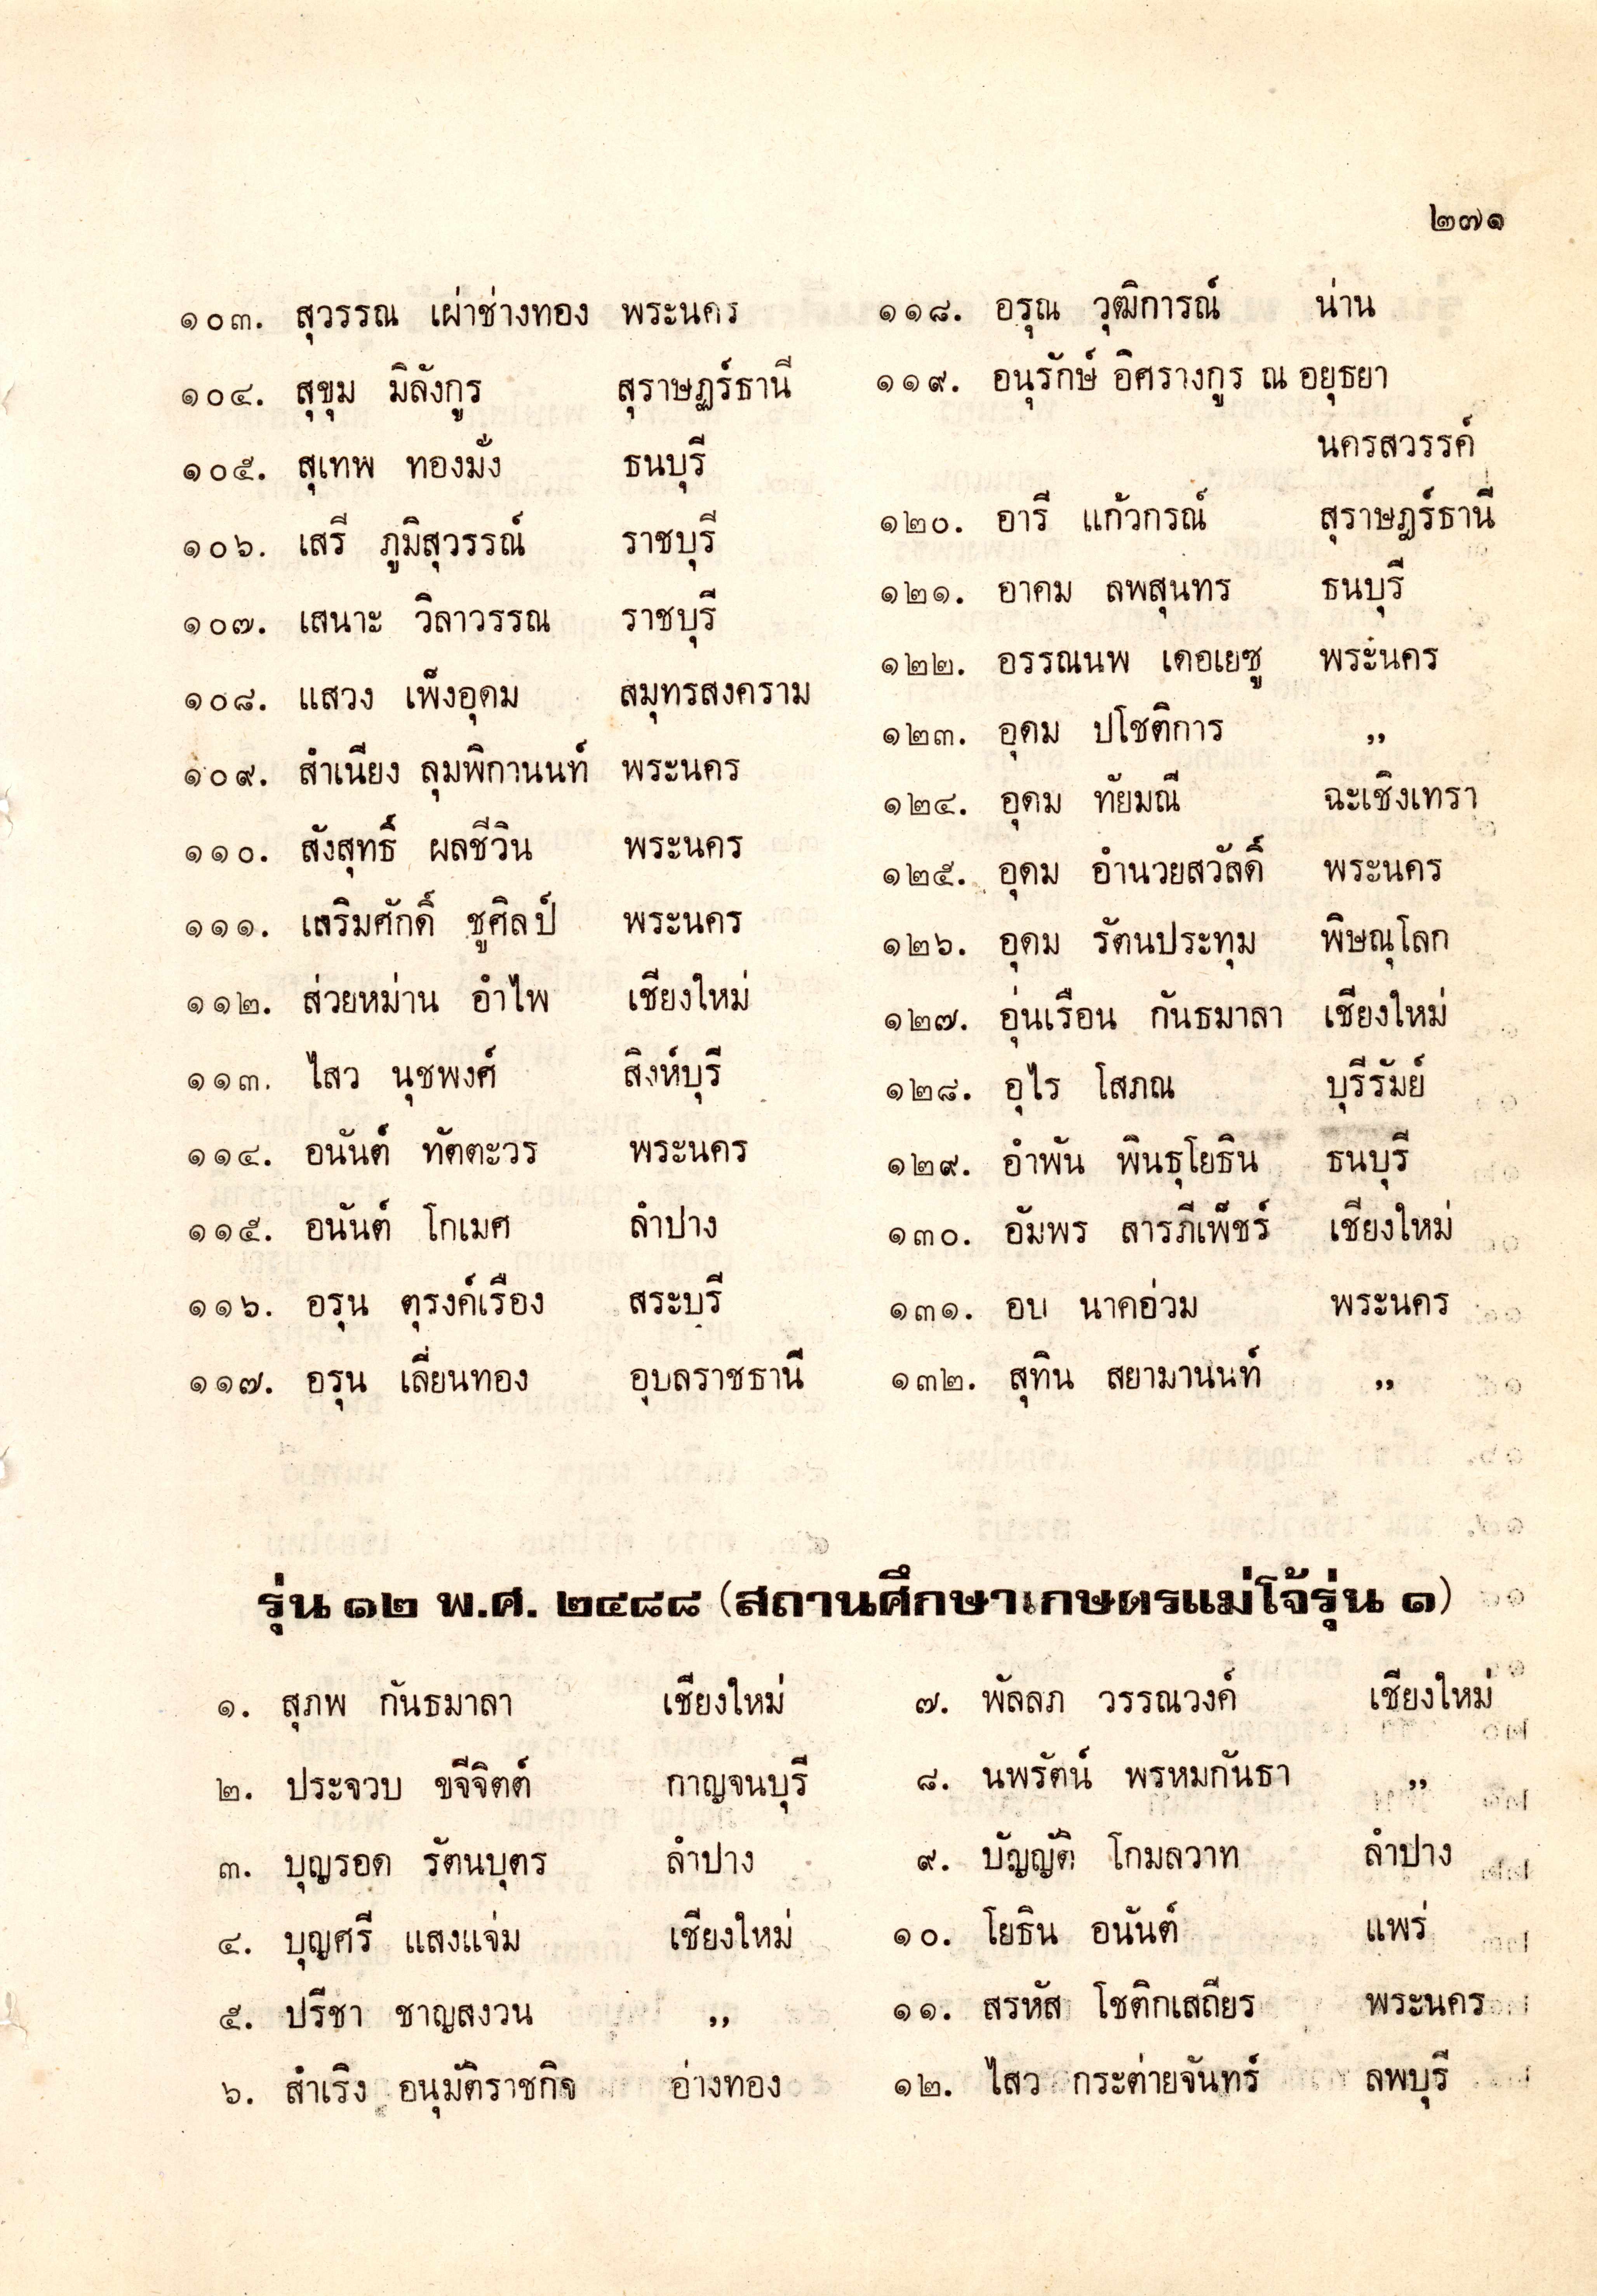 ๒๗๑
๑๐๓. สุวรรณ เผ่าช่างทอง พระนคร
๑๐๔. สุขุม มิลังกูร สุราษฎร์ธานี
๑๐๕. สุเทพ ทองมั่ง ธนบุรี
๑๐๖. เสรี ภูมิสุวรรณ์ ราชบุรี
๑๐๗. เสนาะ วิลาวรรณ ราชบุรี
๑๐๘. แสวง เพ็งอุดม สมุทรสงคราม
๑๐๙. สำเนียง ลุมพิกานนท์ พระนคร
๑๑๐. สังสุทธิ์ ผลชีวิน พระนคร
๑๑๑. เสริมศักดิ์ ชูศิลป์ พระนคร
๑๑๒. ส่วยหม่าน อำไพ เชียงใหม่
๑๑๓. ไสว นุชพงศ์ สิงห์บุรี
๑๑๔. อนันต์ ทัตตะวร พระนคร
๑๑๕. อนันต์ โกเมศ ลำปาง
๑๑๖. อรุน ตุรงค์เรือง สระบุรี
๑๑๗. อรุน เลี่ยนทอง อุบลราชธานี
๑๑๘. อรุณ วุฒิการณ์ น่าน
๑๑๙. อนุรักษ์ อิศรางกูร ณ อยุธยา
นครสวรรค์
๑๒๐. อารี แก้วกรณ์ สุราษฎร์ธานี
๑๒๑. อาคม ลพสุนทร ธนบุรี
๑๒๒. อรรณนพ เดอเยซู พระนคร
๑๒๓. อุดม ปโชติการ ,,
๑๒๔. อุดม ทัยมณี ฉะเชิงเทรา
๑๒๕. อุดม อำนวยสวัสดิ์ พระนคร
๑๒๖. อุดม รัตนประทุม พิษณุโลก
๑๒๗. อุ่นเรือน กันธมาลา เชียงใหม่
๑๒๘. อุไร โสภณ บุรีรัมย์
๑๒๙. อำพัน พินธุโยธิน ธนบุรี
๑๓๐. อัมพร สารภีเพ็ชร์ เชียงใหม่
๑๓๑. อบ นาคอ่วม พระนคร
๑๓๒. สุทิน สยามานนท์ ,,
รุ่น ๑๒ พ.ศ. ๒๔๘๘ (สถานศึกษาเกษตรแม่โจ้รุ่น ๑)
๑. สุภพ กันธมาลา เชียงใหม่
๒. ประจวบ ขจีจิตต์ กาญจนบุรี
๓. บุญรอด รัตนบุตร ลำปาง
๔. บุญศรี แสงแจ่ม เชียงใหม่
๕. ปรีชา ชาญสงวน ,,
๖. สำเริง อนุมัติราชกิจ อ่างทอง
๗. พัลลภ วรรณวงค์ เชียงใหม่
๘. นพรัตน์ พรหมกันธา ,,
๙. บัญญัติ โกมลวาท ลำปาง
๑๐. โยธิน อนันต์ แพร่
๑๑. สรหัส โชติกเสถียร พระนคร
๑๒. ไสว กระต่ายจันทร์ ลพบุรี